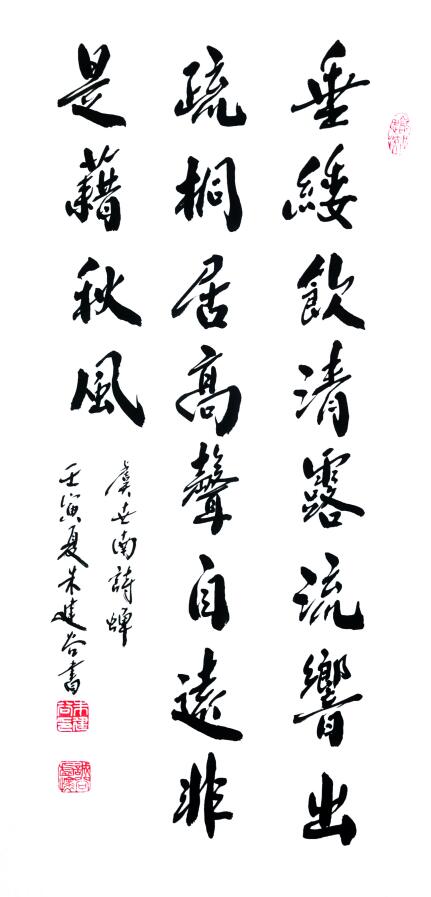 垂緌飲清露流響出
疏桐居高聲自遠非
是藉秋風
虞世南詩蟬
壬寅夏朱建谷書